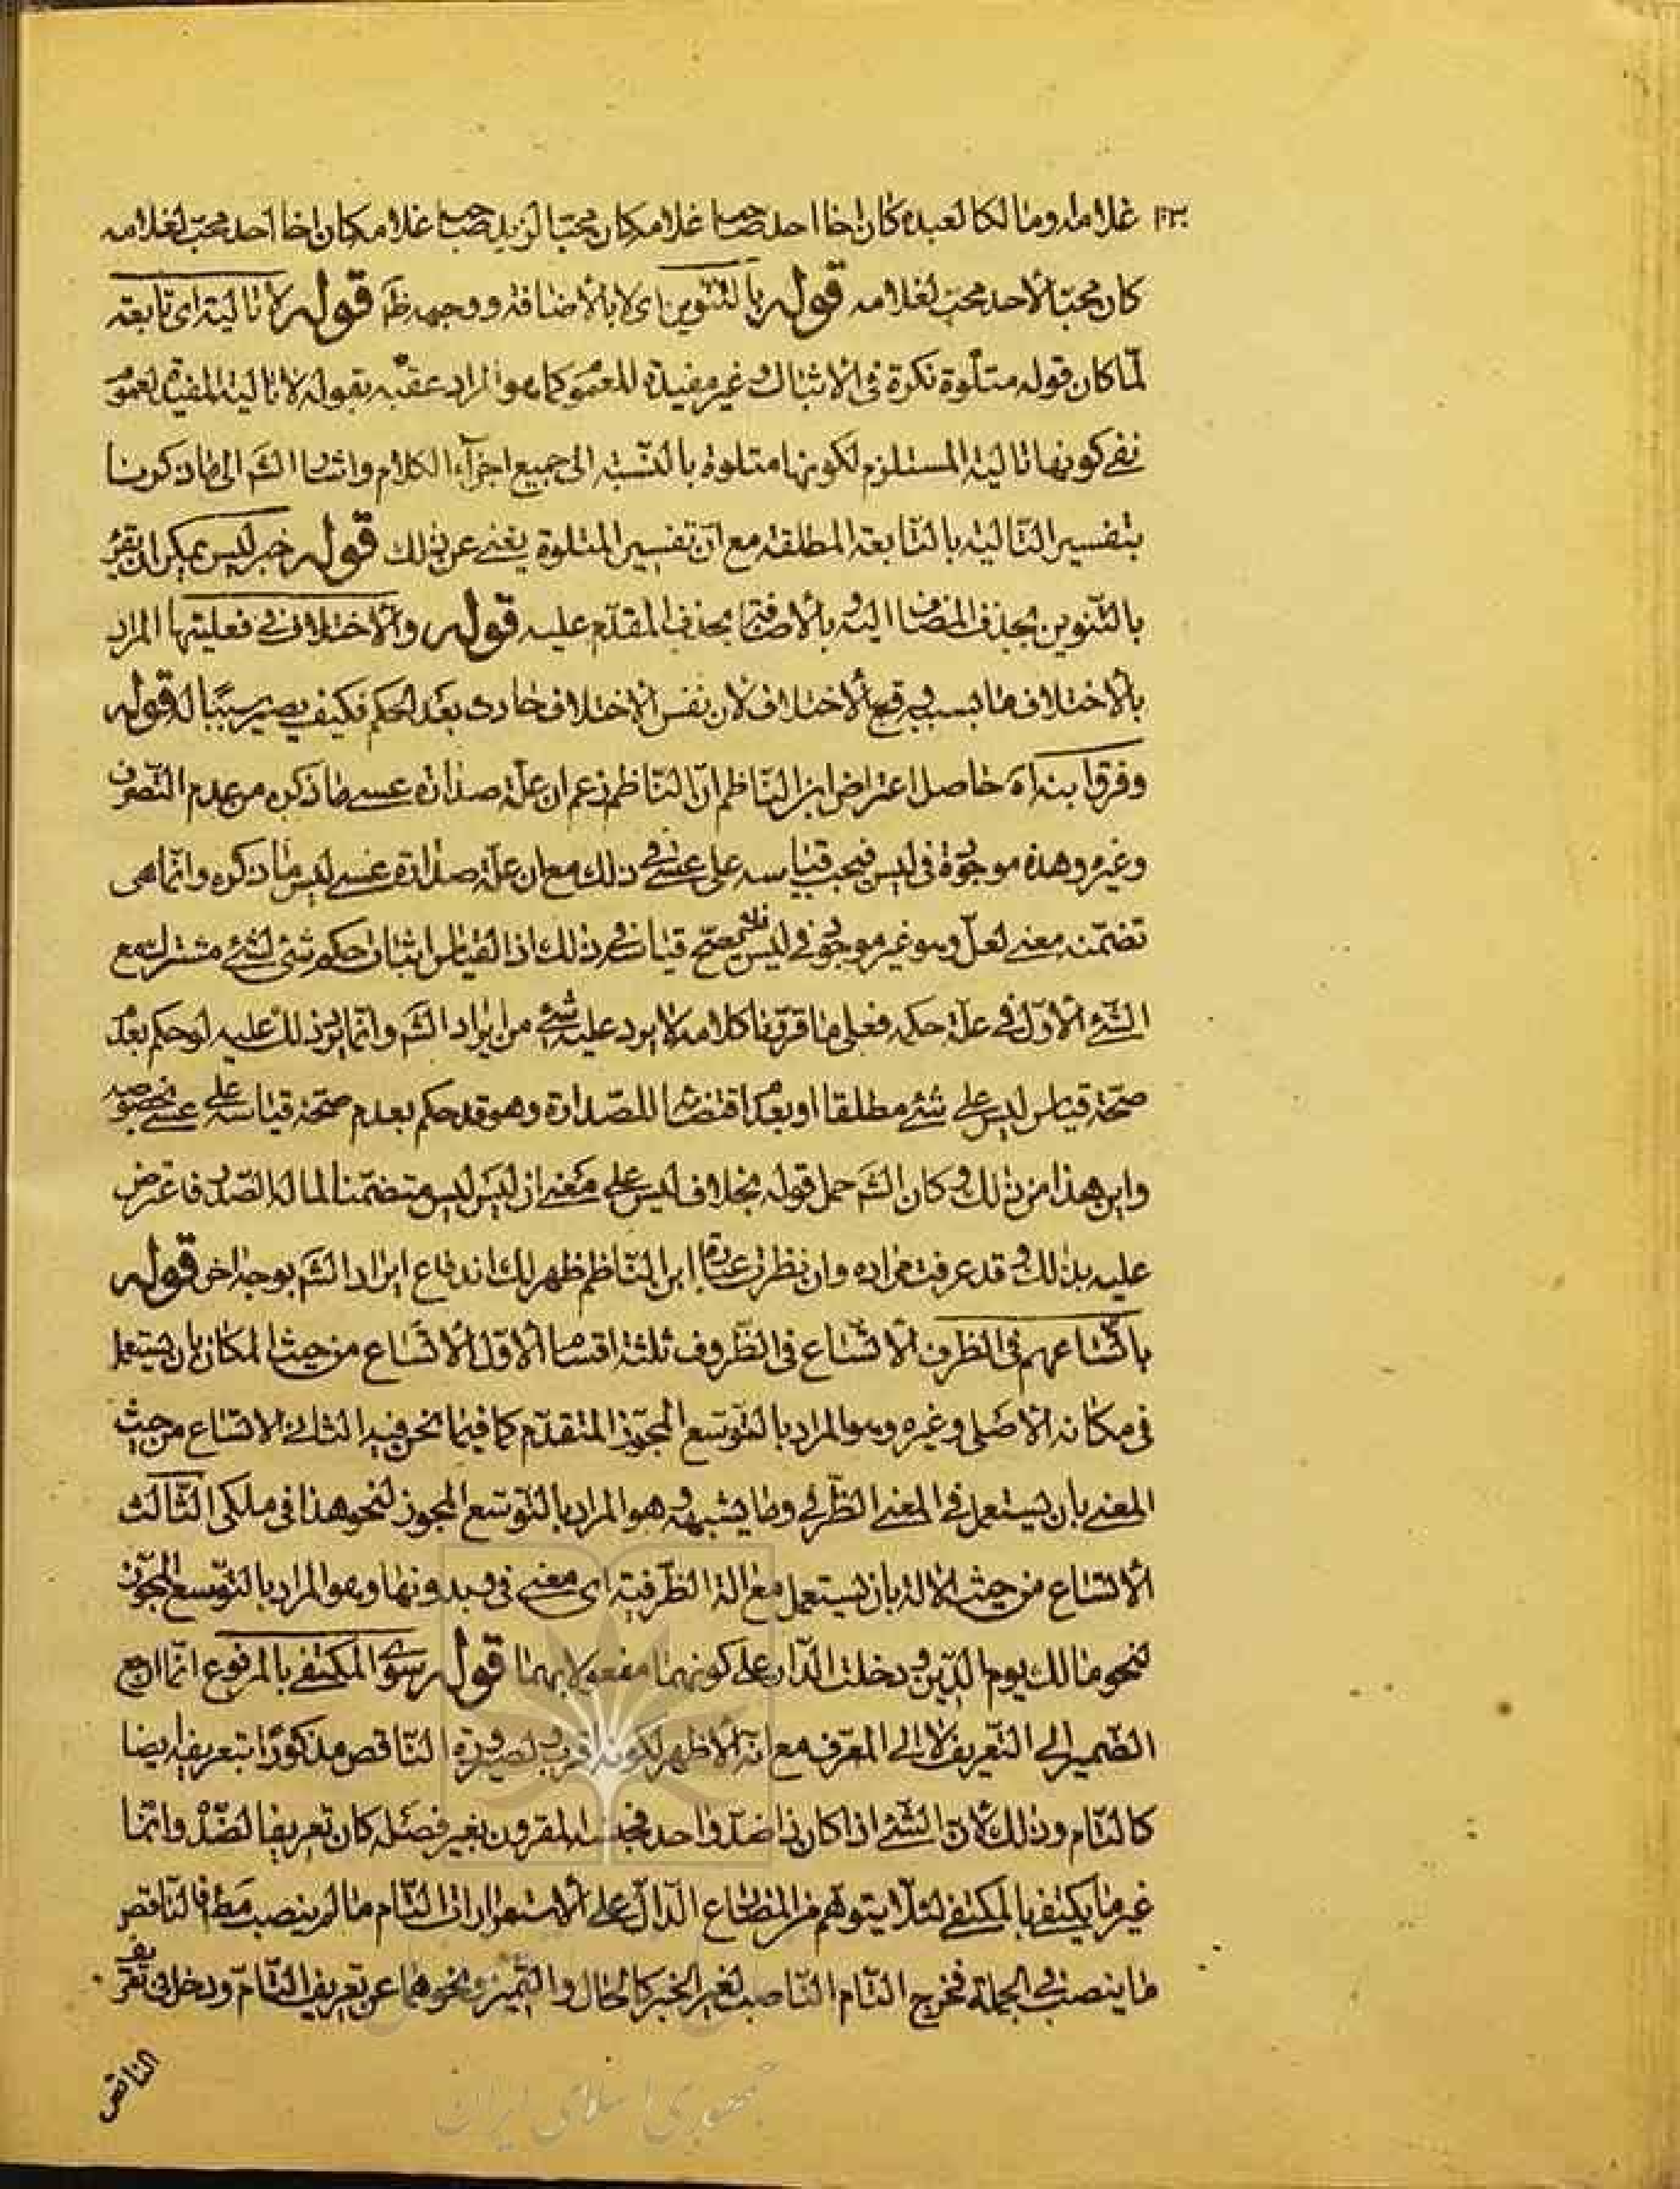 غلامه ومالكا لعبده كان اخا احد صاحب غلامه كان محبا لزيد صاحب غلامه كان اخا احد محب لغلامه
كان محبا لاحد محب لغلامه قوله بالتنوين اى لا بالاضافة ووجهه ظ قوله لا تالية اى تابعة
لما كان قوله متلوة نكرة فى الاثبات وغير مفيدة للعموم كما هو المراد عقبه بقوله لا تالية المفيد لعموم
نفى كونها تالية المستلزم لكونها متلوة بالنسبة الى جميع اجزاء الكلام واشار الشم الى ما ذكرنا
بتفسير التالية بالتابعة المطلقة مع ان تفسير المتلوة يغنى عن ذلك قوله خبر ليس يمكن ان يقرء
بالتنوين بحذف المضاف اليه وبالاضافة بحذف المقدم عليه قوله والاختلاف فى فعليتها المراد
بالاختلاف ما بسببه وقع الاختلاف لان نفس الاختلاف حادث بعد الحكم فكيف يصير سببا له قوله
وفرق ابنه اه حاصل اعتراض ابن الناظم ان الناظم زعم ان علة صدارة عسى ما ذكره من عدم التصرف
وغيره وهذه موجودة فى ليس فيجب قياسه على عسى فى ذلك مع ان علة صدارة عسى ليس ما ذكره وانما هى
تضمنه معنى لعل وهو غير موجود فى ليس فلم يصح قياسه فى ذلك اذ القياس اثبات حكم شئ لشئ مشترك مع
الشئ الاول فى علة حكمه فعلى ما قررنا كلامه لا يرد عليه شئ من ايراد الشم وانما يرد ذلك عليه لو حكم بعدم
صحة قياس ليس على شئ مطلقا او بعدم اقتضائه للصدارة وهو قد حكم بعدم صحة قياسه على عسى بخصوصه
واين هذا من ذلك وكان الشم حمل قوله بخلاف ليس على معنى ان ليس ليس متضمنا لما له الصدر فاعترض
عليه بذلك وقد عرفت مراده وان نظرت عبارة ابن الناظم ظهر لك اندفاع ايراد الشم بوجه اخر قوله
باتساعهم فى الظرف الاتساع فى الظروف ثلثة اقسام الاول الاتساع من حيث المكان بان يستعمل
فى مكانه الاصلى وغيره وهو المراد بالتوسع المجوز المتقدم كما فيما نحن فيه الثانى الاتساع من حيث
المعنى بان يستعمل فى المعنى الظرفى وما يشبهه وهو المراد بالتوسع المجوز لنحو هذا فى ملكى الثالث
الاتساع من حيث الالة بان يستعمل مع الة الظرفية اى معنى فى وبدونها وهو المراد بالتوسع المجوز
لنحو مالك يوم الدين ودخلت الدار على كونهما مفعولا بهما قوله سوى المكتفى بالمرفوع انما ارجع
الضمير الى التعريف لا الى المعرف مع انه الاظهر لكونه اقرب لصيرورة الناقص مذكورا بتعريفه ايضا
كالتام وذلك لان الشئ اذا كان ذا ضد واحد المقرون بغير فصله كان تعريفا لضده وانما
غير ما يكتفى بالمكتفى لئلا يتوهم من المضارع الدال على الاستمرار ان التام ما لم ينصب مط والناقص
ما ينصب فى الجملة فخرج التام الناصب لغير الخبر كالحال والتميز ونحوهما عن تعريف التام ودخل فى تعريف
الناقص
جمهورى اسلامى ايران